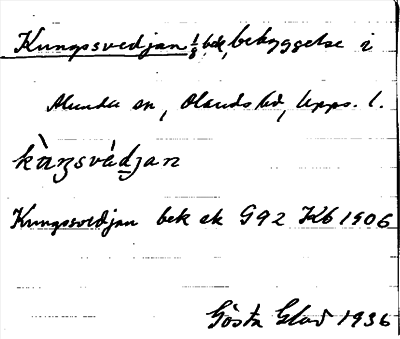 Kungsvedjan 1/8 bek, bebyggelse i
Alunda sn, Olands hd, Upps. l.
kàŋsvé̀djan
Kungsvedjan bek ek G92 Kb 1906
Gösta Glad 1936